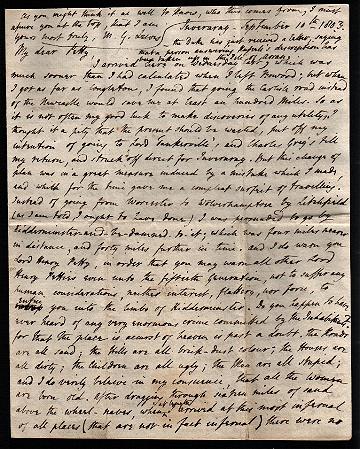 As you might think it as well to know, who this comes from, I must
assure you at the top, that I am Inveraray. September 10th 1803.
yours most truly, M. G. Lewis the Duke has just received a letter, saying
that a person answering Infeld's description has
been taken up on the Isle of Arran.
My dear Petty
I arrived here on Wednesday 7th, which was
much sooner than I had calculated when I left Bowood; but when
I got as far as Longtown, I found that going the Carlisle road instead
of the Newcastle would save me at least an hundred Miles. So as
it is not often my good luck to make discoveries of any utility, I
thought it a pity that the present should be wasted, put off my
intention of going to Lord Tankerville's, and Charles Grey's till
my return, and struck off direct for Inveraray. But this change of
plan was in a great measure induced by a mistake which I made,
and which for the time gave me a compleat surfeit of travelling.
Instead of going from Worcester to Wolverhampton by Litchfield
(as I am told I ought to have done) I was persuaded to go by
Kidderminster—and be damned to it; which was four miles nearer
in distance, and forty miles further in time. and I do warn you
Lord Henry Petty, in order that you may warn all other Lord
Henry Pettys even unto the fiftieth Generation, not to suffer any
human considerations, neither interest, flattery, nor force, to
entice you into the limbs of Kidderminster. Do you happen to have
ever heard of any very enormous crime committed by the Inhabitants?
for that the place is accurst of heaven is past a doubt. the Roads
are all sand; the hills are all brick-dust colour; the Houses are
all dirty; the Children are all ugly; the Men are all stupid;
and I do verily believe in my conscience, that all the women
are born old. After dragging through sixteen miles of sand
above the wheel-naves, when at length I arrived at this most infernal
of all places (that are not in fact infernal) there were no